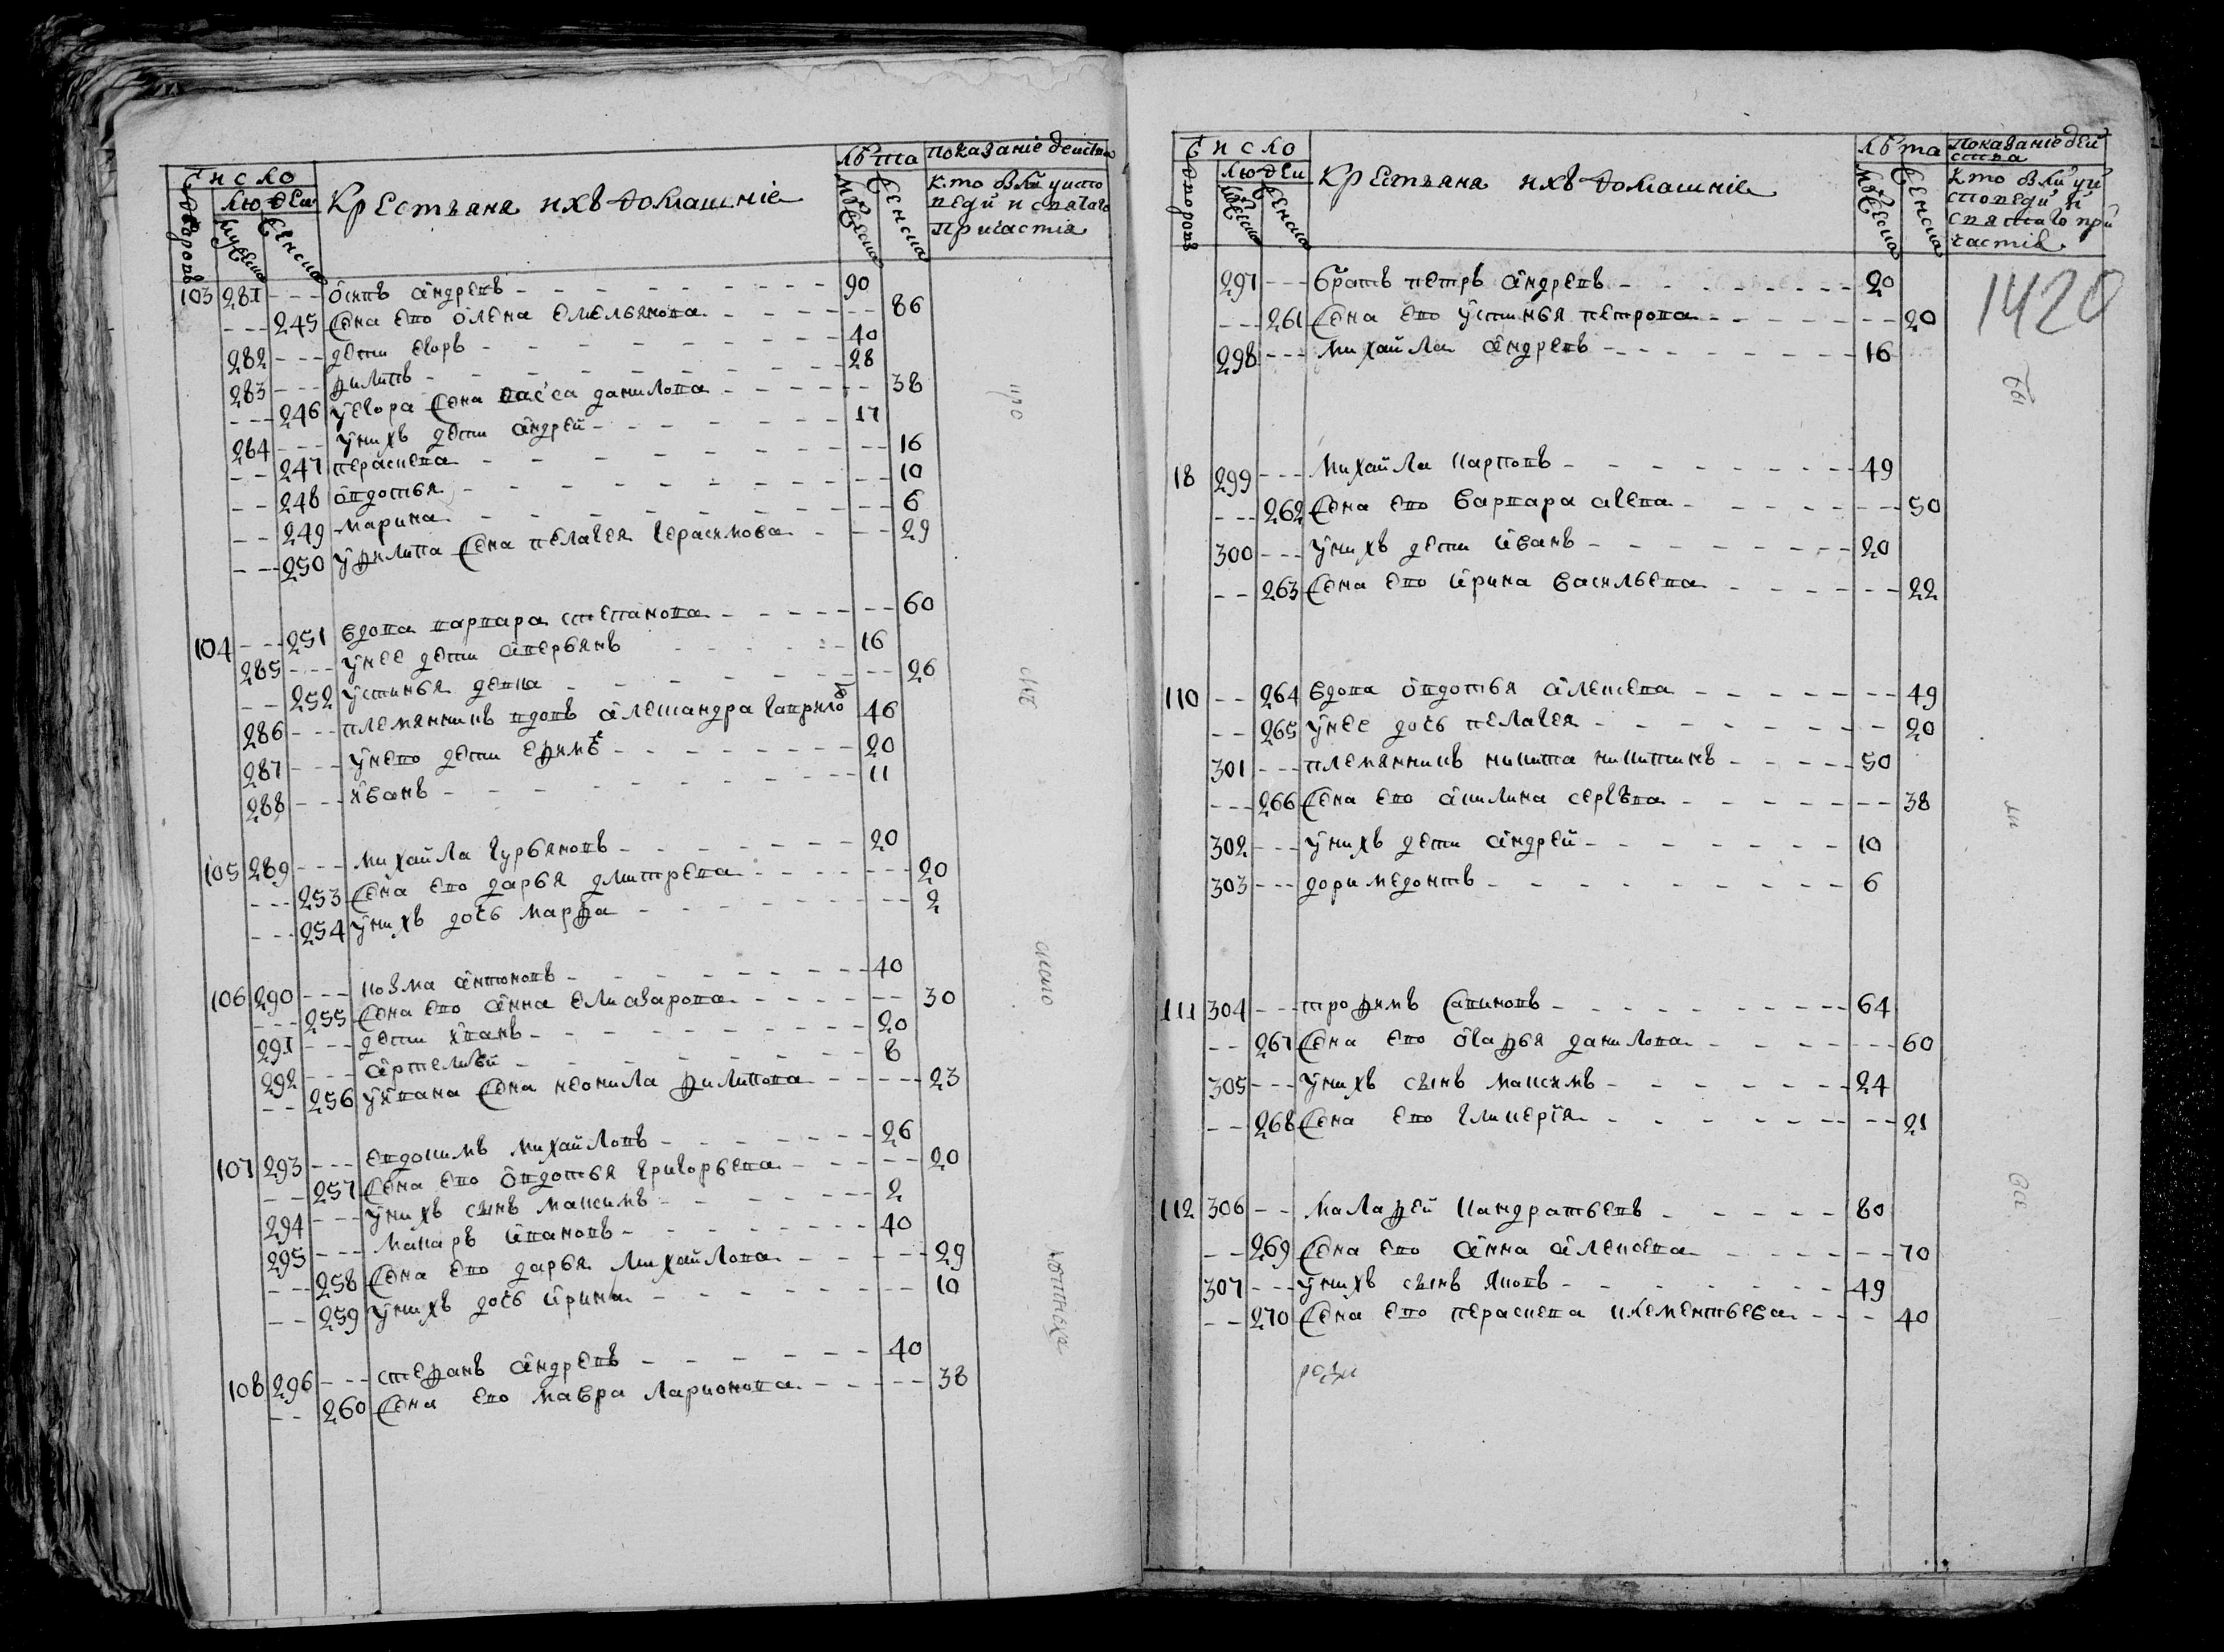 Число
людеи
дворовъ
мужеска
женска
Крестьяня ихъ домашніе
лѣта
мужеска
женска
показаніе деиства
кто былъ у испо
веди и святаго
причастія
103 281 --- осипъ андревъ 90
--- 245 жена ево олена омельянова 86
282 --- дети егоръ 40
283 --- филипъ 28
--- 246 у егора жена васса данилова 38
284 --- у нихъ дети андрей 17
-- 247 пераскева 16
-- 248 овдотья 10
-- 249 марина 6
-- 250 у филипа жена пелагея герасимова 29
104 -- 251 вдова варвара степанова 60
285 --- у нее дети аверьянъ 16
-- 252 устинья девка 26
286 --- племянникъ вдовъ александра гаврилов 46
287 --- у нево дети ефимъ 20
288 --- иванъ 11
105 289 --- михайла гурьяновъ 20
--- 253 жена ево дарья дмитрева 20
--- 254 у нихъ дочь марфа 2
106 290 --- козма антоновъ 40
--- 255 жена ево анна елисаварова 30
291 --- дети иванъ 20
292 --- артемѣй 8
-- 256 у ивана жена неонила филипова 23
107 293 --- евдокимъ михайловъ 26
-- 257 жена ево овдотья григорьева 20
294 --- у нихъ сынъ максимъ 2
295 --- макаръ ивановъ 40
-- 258 жена ево дарья михайлова 29
-- 259 у нихъ дочь ирина 10
108 296 --- стефанъ андревъ 40
-- 260 жена ево мавра ларионова 38
що
ме
систо
вотнехе
Число
людеи
дворовъ
мужеска
женска
Крестьяня ихъ домашніе
лѣта
мужеска
женска
показаніе дей
ства
кто былъ у и
споведи и
святаго при
частія
1420
297 --- братъ петръ андревъ 20
--- 261 жена ево устинья петрова 20
298 --- михайла андревъ 16
бы
18 299 --- михайла карповъ 49
--- 262 жена ево варвара агева 50
300 --- у нихъ дети иванъ 20
-- 263 жена ево ирина васильева 22
110 -- 264 вдова овдотья алексева 49
-- 265 у нее дочь пелагея 20
301 --- племянникъ никита никитинъ 50
--- 266 жена ево акилина сергѣва 38
302 --- у нихъ дети андрей 10
303 --- доримедонтъ 6
ли
111 304 --- трофимъ савиновъ 64
-- 267 жена ево агафья данилова 60
305 --- у нихъ сынъ максимъ 24
-- 268 жена ево гликерія 21
все
112 306 -- малафей кандратьевъ 80
-- 269 жена ево анна алексева 70
307 --- у нихъ сынъ яковъ 49
-- 270 жена ево пераскева клементьева 40
рози